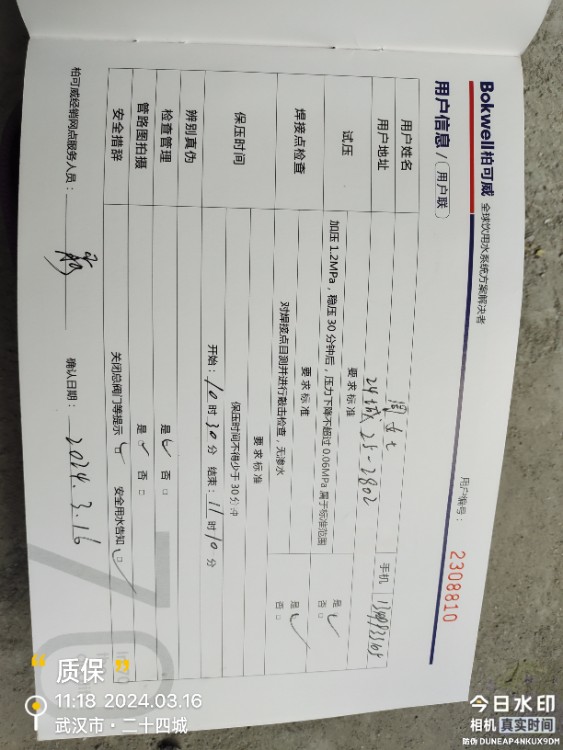 Bokwell柏可威 全球饮用水系统方案解决者
用户信息 / 用户联
用户编号: 2308810
用户姓名
手机
用户地址 24城 25-2802
试压
要求标准
加压1.2MPa,稳压30分钟后,压力下降不超过0.06MPa属于标准范围
是 ✓
否 □
焊接点检查
要求标准
对焊接点目测并进行敲击检查,无渗水
是 ✓
否 □
保压时间
要求标准
保压时间不得少于30分钟
开始: 10 时 30 分 结束: 11 时 10 分
辨别真伪
检查管理 是 ✓ 否 □
管路图拍摄 是 ✓ 否 □
安全措辞 关闭总阀门等提示 ✓ 安全用水告知 ✓
柏可威经销网点服务人员:
确认日期: 2024.3.16
质保
11:18 2024.03.16
武汉市·二十四城
今日水印
相机 真实时间
防伪 DUNEAP4NKUX9DM